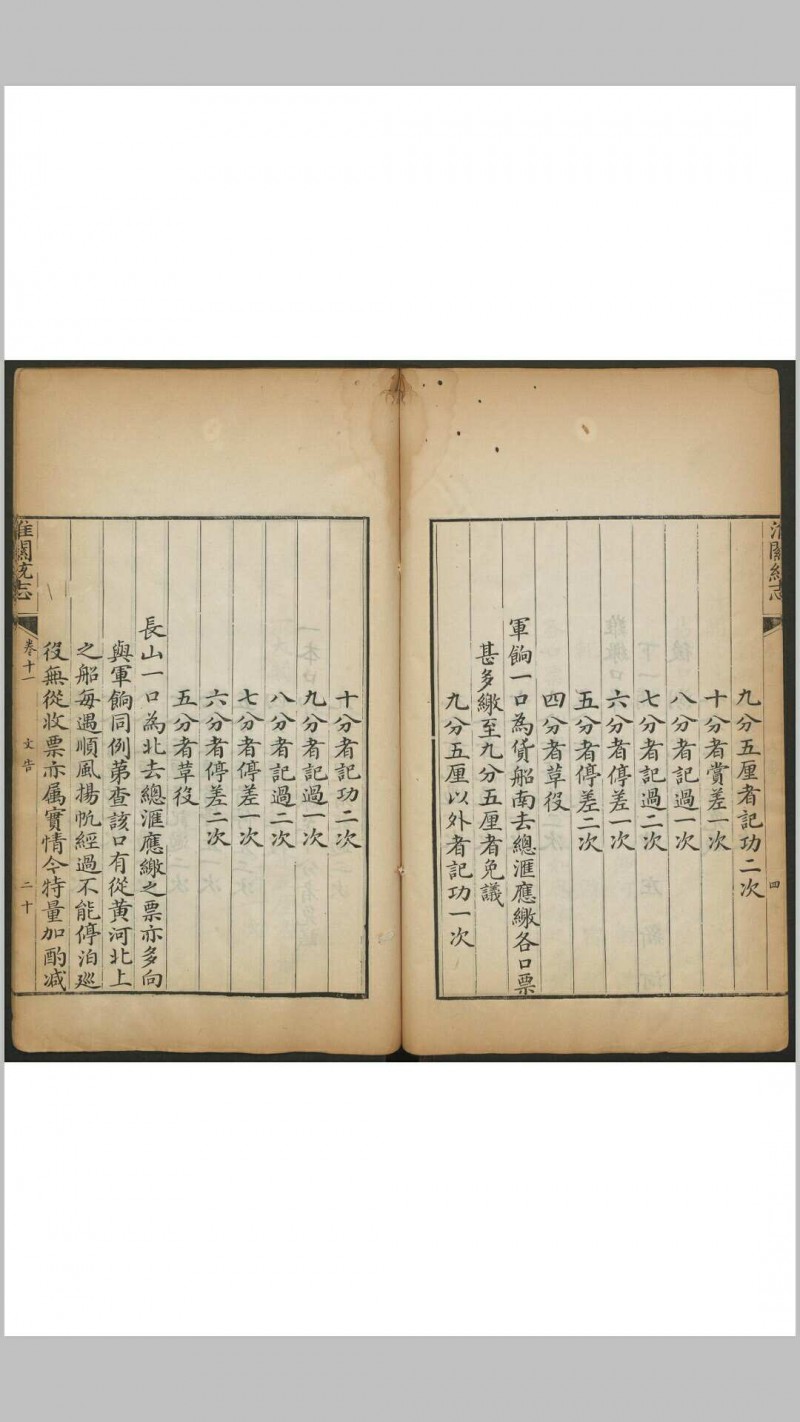 淮關統志
四
九分五厘者記功二次
十分者賞差一次
八分者記過一次
七分者記過二次
六分者停差一次
五分者停差二次
四分者革役
軍餉一口為貨船南去總滙應繳各口票
甚多繳至九分五厘者免議
九分五厘以外者記功一次
十分者記功二次
九分者記過一次
八分者記過二次
七分者停差一次
六分者停差二次
五分者草役
長山一口為北去總滙應繳之票亦多向
與軍餉同例第查該口有從黄河北上
之船每遇順風揚帆經過不能停泊廵
役無從收票亦属實情今特量加酌减
淮關統志
卷十一
文告
二十